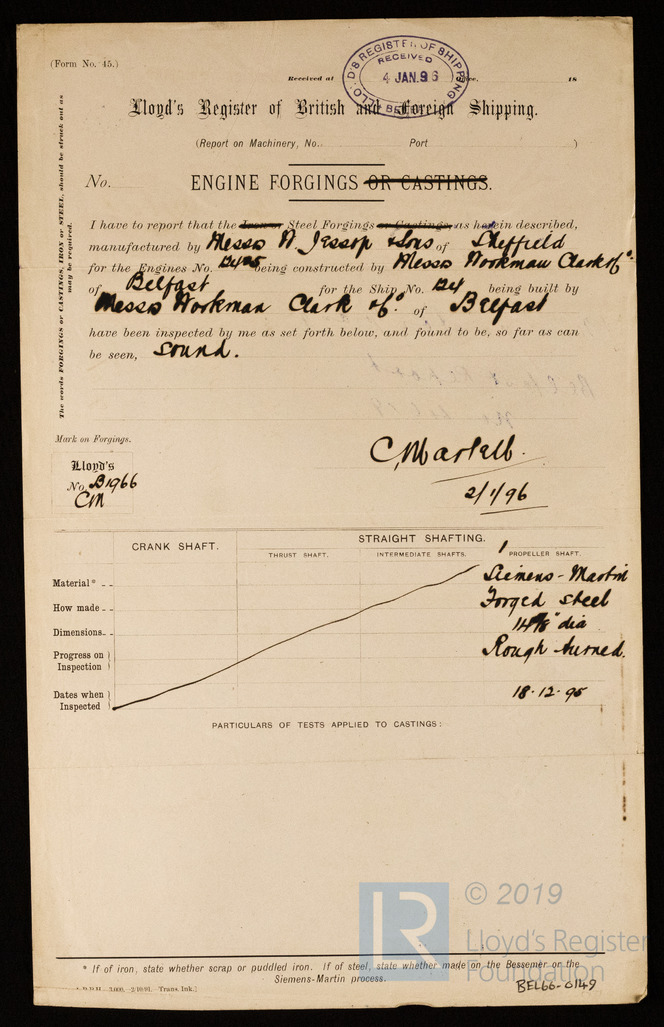 (Form No. 45.)
LLOYD'S REGISTER OF SHIPPING
RECEIVED
4 JAN. 96
Received at 18
Lloyd's Register of British and Foreign Shipping.
(Report on Machinery, No. Port )
No. ENGINE FORGINGS OR CASTINGS.
The words FORGINGS or CASTINGS, IRON or STEEL, should be struck out as
may be required.
I have to report that the Iron or Steel Forgings or Castings, as herein described,
manufactured by Messrs W. Jessop & Sons of Sheffield
for the Engines No. being constructed by Messrs Workman Clark & Co.
of Belfast for the Ship No. 124 being built by
Messrs Workman Clark & Co. of Belfast
have been inspected by me as set forth below, and found to be, so far as can
be seen, Sound.
Mark on Forgings.
Lloyd's
No. B1966
CM
C. Martell.
2/1/96
CRANK SHAFT. STRAIGHT SHAFTING.
THRUST SHAFT. INTERMEDIATE SHAFTS. 1 PROPELLER SHAFT.
Material* Siemens-Martin
How made Forged Steel
Dimensions dia
Progress on Inspection Rough turned.
Dates when Inspected 18.12.95
PARTICULARS OF TESTS APPLIED TO CASTINGS:
LR © 2019
Lloyd's Register
Foundation
* If of iron, state whether scrap or puddled iron. If of steel, state whether made on the Bessemer or the
Siemens-Martin process.
3,000, —2/10/91.—Trans. Ink.]
BEL66-0149